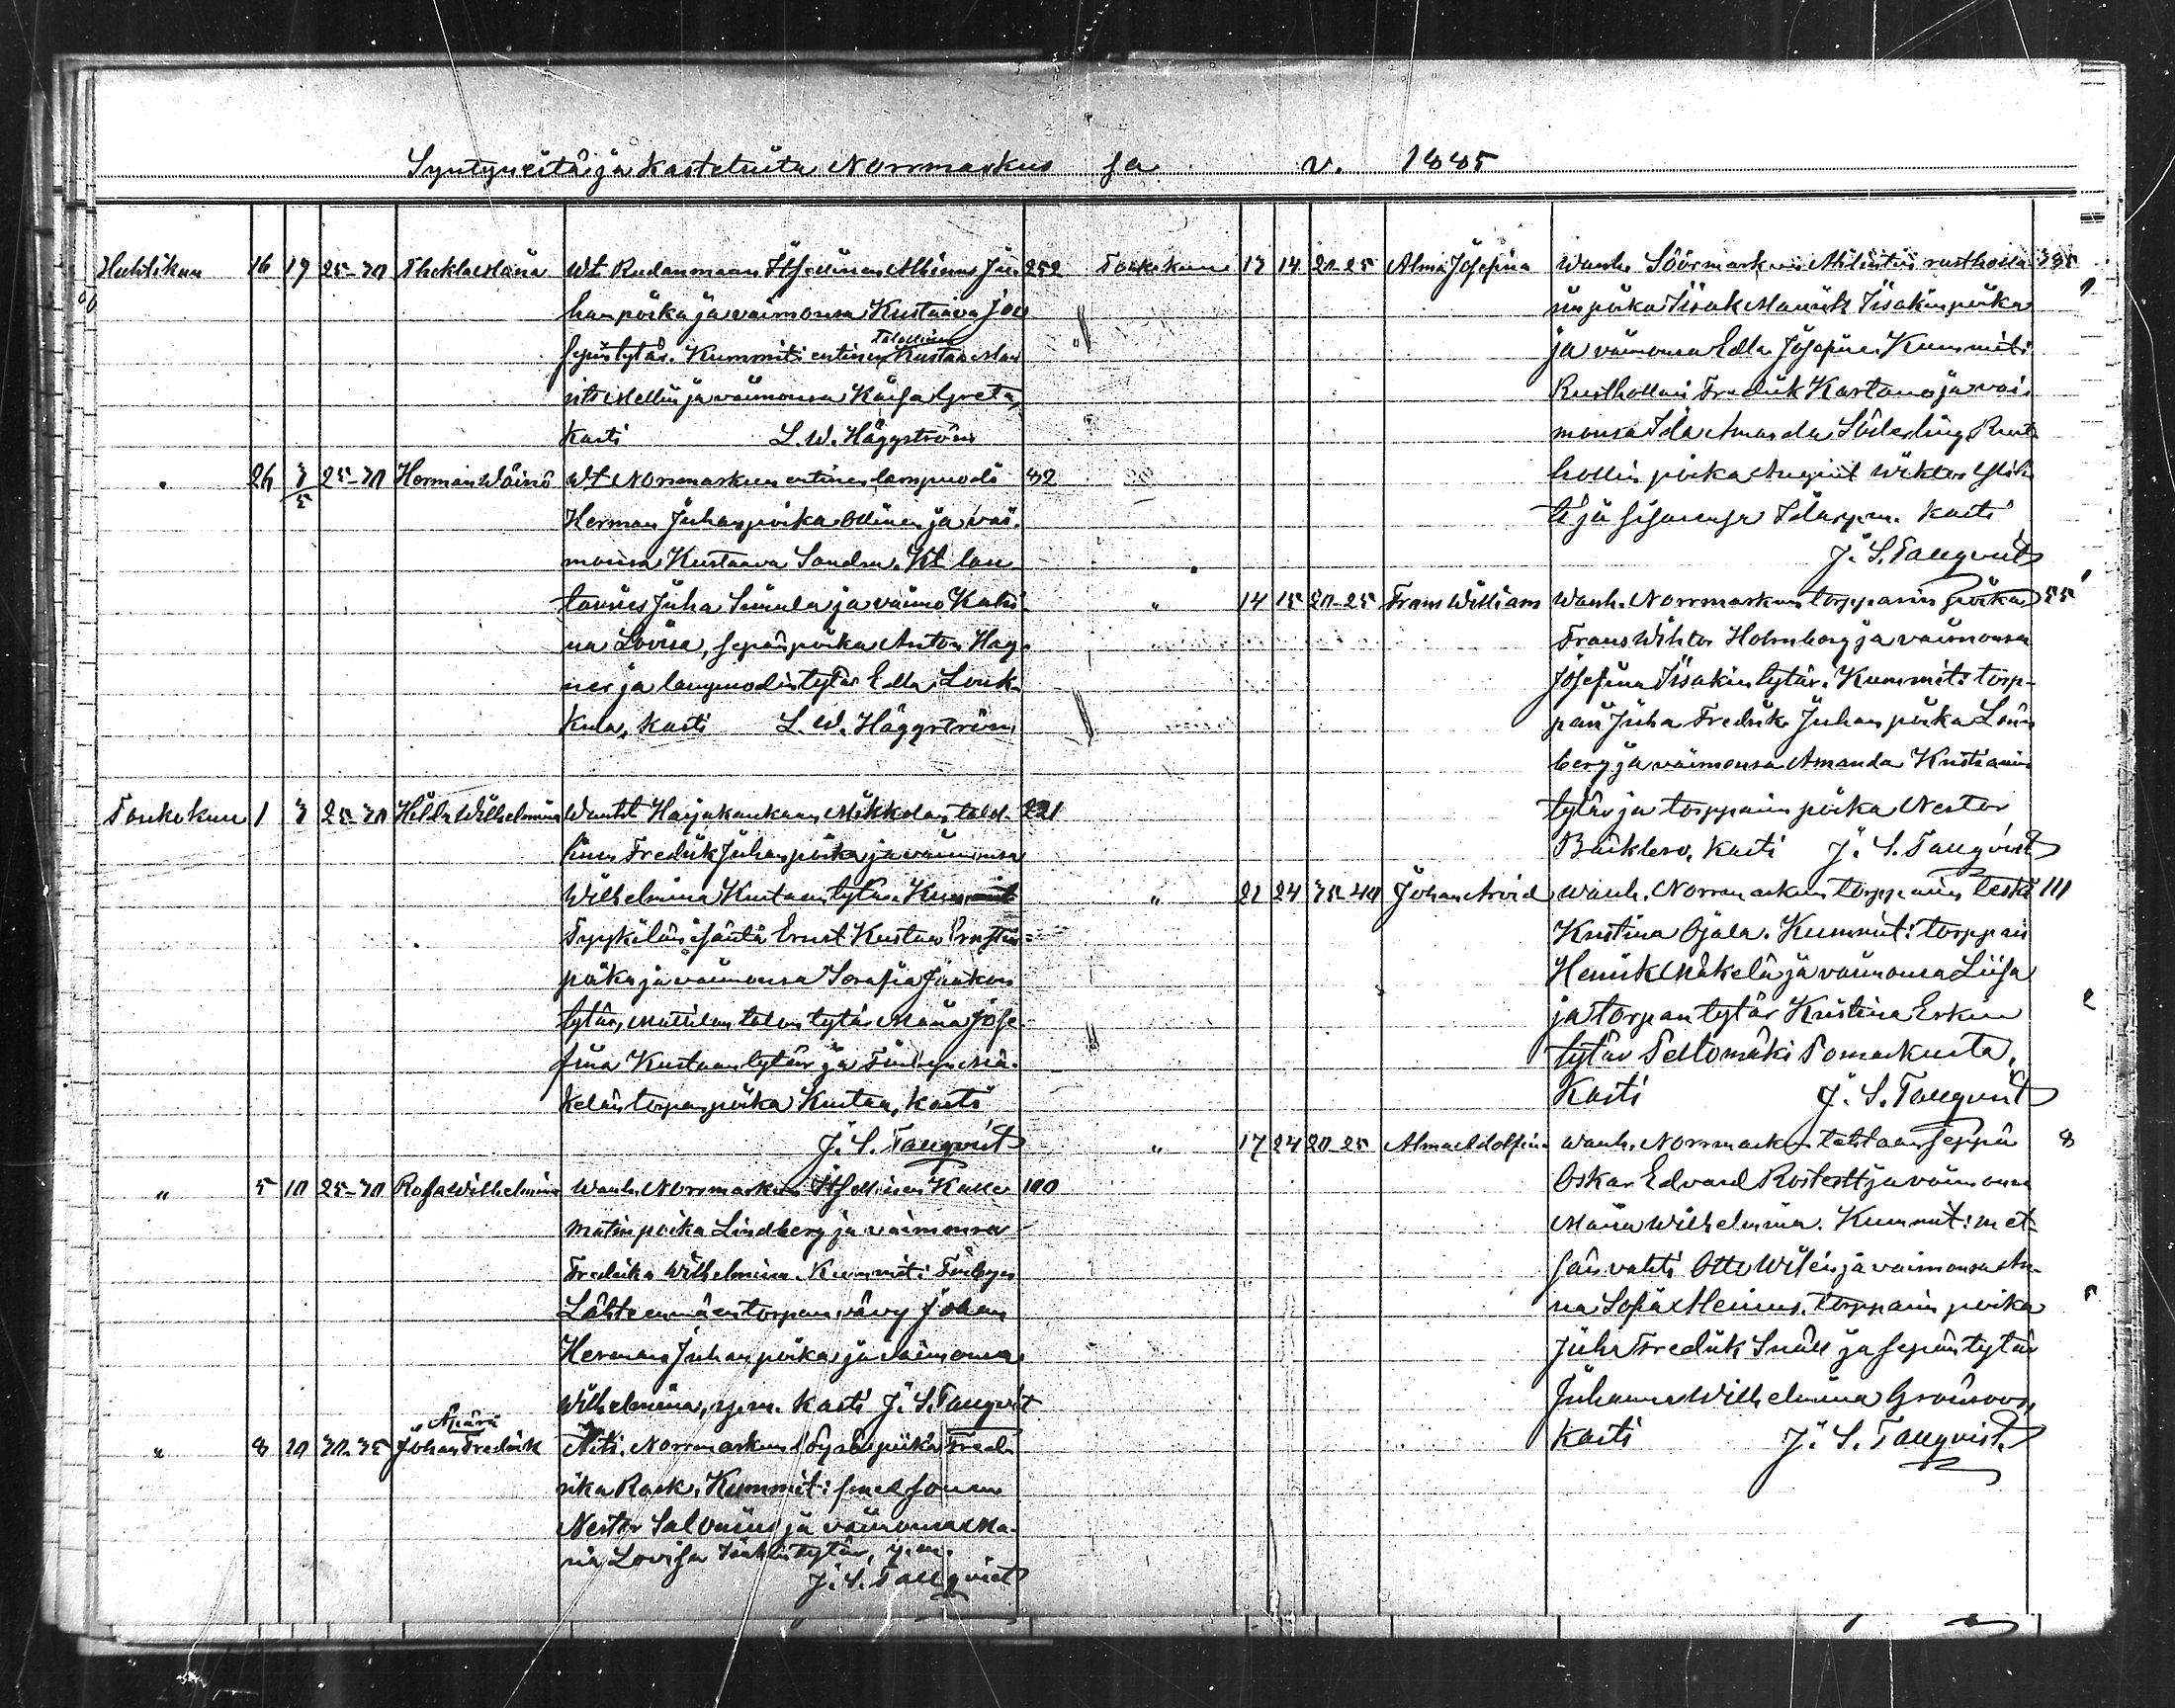 Syntyneitä ja Kastetuita Norrmarkus sa v. 1885
Huhtikuu 16 19 25-30 Thekla Maria Wt Itsellinen 252
han poika ja vaimonsa Kustaava Joo
Talollinen
sepin tytär. Kummit: entinen Kustaa Mau
rits Mellin ja vaimonsa Kaisa Greta,
Kasti L. W. Häggström
" 26 3/5 25-30 Herman Wäinö Wt Norrmarkun entinen lampuodi 32
Herman Juhanpoika Ollinen ja vai-
monsa Kustaava Sandra. Kt lau
Juha Simula ja vaimo Katri
na Lovisa, sepän poika Anton Hag
ner ja lampuodin tytär Edla Louk-
kula, Kasti L. W. Häggström
Toukokuu 1 3 25-30 Hilda Wilhelmina Wanht Harjakankaan Mikkolan talol- 221
linen Fredrik Juhanpoika ja vaimonsa
Wilhelmina Kustaan tytär. Kummit
isäntä Ernst Kustaa
poika ja vaimonsa Serafia Jaakon
tytär, Mattilan talon tytär Maria Jose
fina Kustaan tytär ja Finbyn Mä-
kelän torpan poika Kustaa, Kasti
J. S. Tallqvist
" 5 10 25-30 Rosa Wilhelmina Wanh. Norrmarkun Itsellinen Kalle 100
Matinpoika Lindberg ja vaimonsa
Fredrika Wilhelmina. Kummit: Finbyn
Lähteenmäen torpan vävy Johan
Herman Juhanpoika ja vaimonsa
Wilhelmina, y.m. Kasti J. S. Tallqvist
Äpärä
" 8 10 30-35 Johan Fredrik Äiti. Norrmarkun piika Fred
rika Rask. Kummit:
Nestor Salonius ja vaimonsa Ma-
ria Lovisa tytär, y.m.
J. S. Tallqvist
Toukokuu 13 14 20-25 Alma Josefina Wanh. Söörmarkun rusthollä
rin poika Iisak Maurits Iisakin poika
ja vaimonsa Edla Josefina. Kummit:
Rusthollari Fredrik Kartano ja vai-
monsa Ida Amanda Söderling Rust
hollin poika August Wiktor
ja Ida y.m. Kasti
J. S. Tallqvist
" 14 15 20-25 Frans William Wanh. Norrmarkun torpparin poika 55
Frans Wihtor Holmberg ja vaimonsa
Josefina Iisakin tytär. Kummit: torp-
pari Juha Fredrik Juhan poika Lönn
berg ja vaimonsa Amanda Kristianin
tytär ja torpparin poika Nestor
Kasti J. S. Tallqvist
" 21 24 35-40 Johan Arvid Wanh. Norrmarkun torpparin leski 111
Kristina Ojala. Kummit: torppari
Henrik Mäkelä ja vaimonsa Liisa
ja torpan tytär Kristina Erkin
tytär Peltomäki Pomarkusta,
Kasti J. S. Tallqvist
" 17 24 20-25 Alma Adolfina Wanh. Norrmarkun tehtaan seppä 8
Oskar Edvard Rostedt ja vaimonsa
Maria Wilhelmina. Kummit: met-
sän vahti Otto Wilen ja vaimonsa An-
na Sofia Helenius, torpparin poika
Juha Fredrik Snäll ja sepän tytär
Juhanna Wilhelmina Grönroos,
Kasti J. S. Tallqvist.